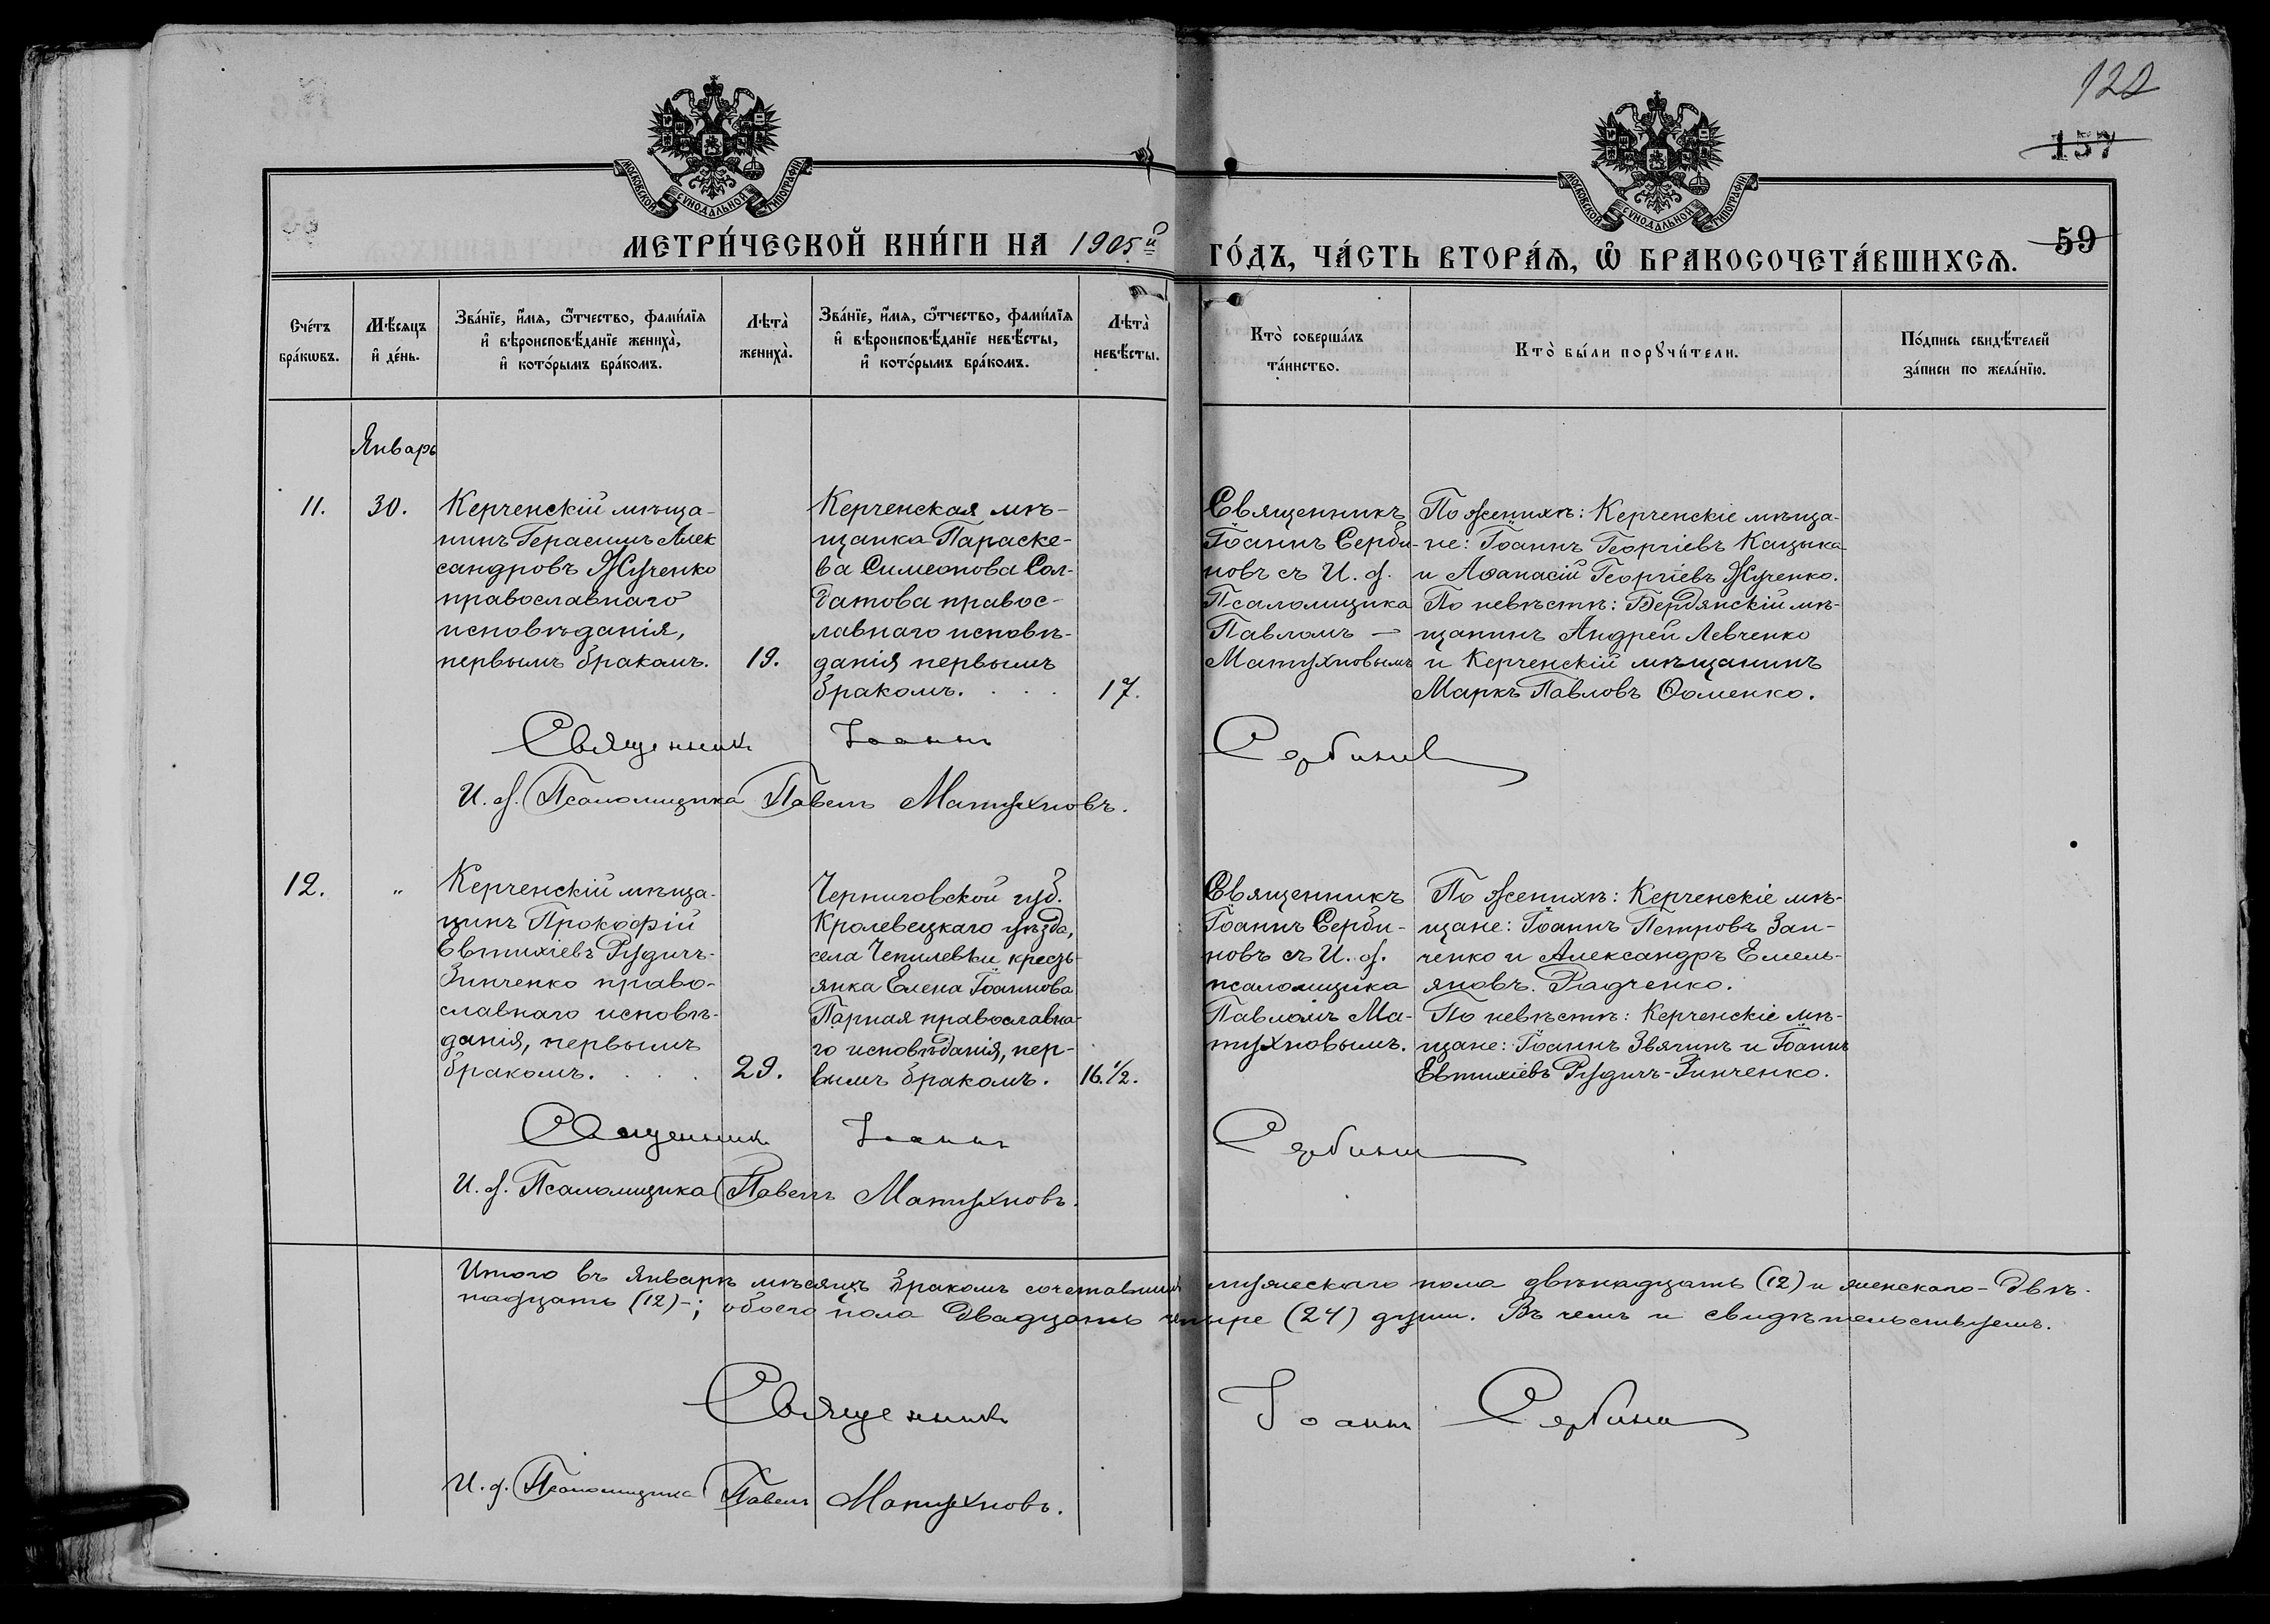 122
157
МОСКОВСКОЙ СѴНОДАЛЬНОЙ ТИПОГРАФІИ
МОСКОВСКОЙ СѴНОДАЛЬНОЙ ТИПОГРАФІИ
МЕТРИ́ЧЕСКОЙ КНИ́ГИ НА 1905й ГО́ДЪ, ЧА́СТЬ ВТОРА́Ѧ, Ѽ БРАКОСОЧЕТА́ВШИХСѦ.
59
Сче́тъ
бра́кѡвъ.
Мѣ́сяцъ
и҆ де́нь.
Зва́нїе, и҆́мя, ѻ҆́тчество, фами́лїя
и҆ вѣроисповѣ́данїе жениха̀,
и҆ кото́рымъ бра́комъ.
Лѣта̀
жениха̀.
Зва́нїе, и҆́мя, ѻ҆́тчество, фами́лїя
и҆ вѣроисповѣ́данїе невѣ́сты,
и҆ кото́рымъ бра́комъ.
Лѣта̀
невѣ́сты.
Кто̀ соверша́лъ
та́инство.
Кто̀ бы́ли порꙋчи́тели.
По́дпись свидѣ́телей
за́писи по жела́нїю.
Январь
11.
30.
Керченскій мѣща-
нинъ Герасимъ Алек
сандровъ Жученко
православнаго
исповѣданія,
первымъ бракомъ.
19.
Керченская мѣ-
щанка Параске-
ва Симеонова Сол-
датова правос-
лавнаго исповѣ-
данія первымъ
бракомъ. . . .
17.
Священникъ
Іоаннъ Серби-
новъ съ И. д.
Псаломщика
Павломъ —
Матухновымъ
По женихѣ: Керченскіе мѣща-
не: Іоаннъ Георгіевъ Кацыка
и Аѳанасій Георгіевъ Жученко.
По невѣстѣ: Бердянскій мѣ-
щанинъ Андрей Левченко
и Керченскій мѣщанинъ
Маркъ Павловъ Ѳоменко.
Священникъ Іоаннъ Сербиновъ
И. д. Псаломщика Павелъ Матухновъ.
12.
"
Керченскій мѣща-
нинъ Прокофій
Евтихіевъ Рудичъ-
Зинченко право-
славнаго исповѣ-
данія, первымъ
бракомъ. . . .
29.
Черниговской губ.
Кролевецкаго уѣзда,
села Чепилевки кресть-
янка Елена Іоаннова
Парная православна-
го исповѣданія, пер-
вымъ бракомъ.
16.1/2.
Священникъ
Іоаннъ Серби-
новъ съ И. д.
псаломщика
Павломъ Ма-
тухновымъ.
По женихѣ: Керченскіе мѣ-
щане: Іоаннъ Петровъ Заи-
ченко и Александръ Емель-
яновъ Радченко.
По невѣстѣ: Керченскіе мѣ-
щане: Іоаннъ Звягинъ и Іоаннъ
Евтихіевъ Рудичъ-Зинченко.
Священникъ Іоаннъ Сербиновъ
И. д. Псаломщика Павелъ Матухновъ.
Итого въ Январѣ мѣсяцѣ бракомъ сочетавшихся мужескаго пола двѣнадцать (12) и женскаго - двѣ-
надцать (12)-; обоего пола двадцать четыре (24) души. Въ чемъ и свидѣтельствуемъ.
Священникъ Іоаннъ Сербиновъ
И. д. Псаломщика Павелъ Матухновъ.